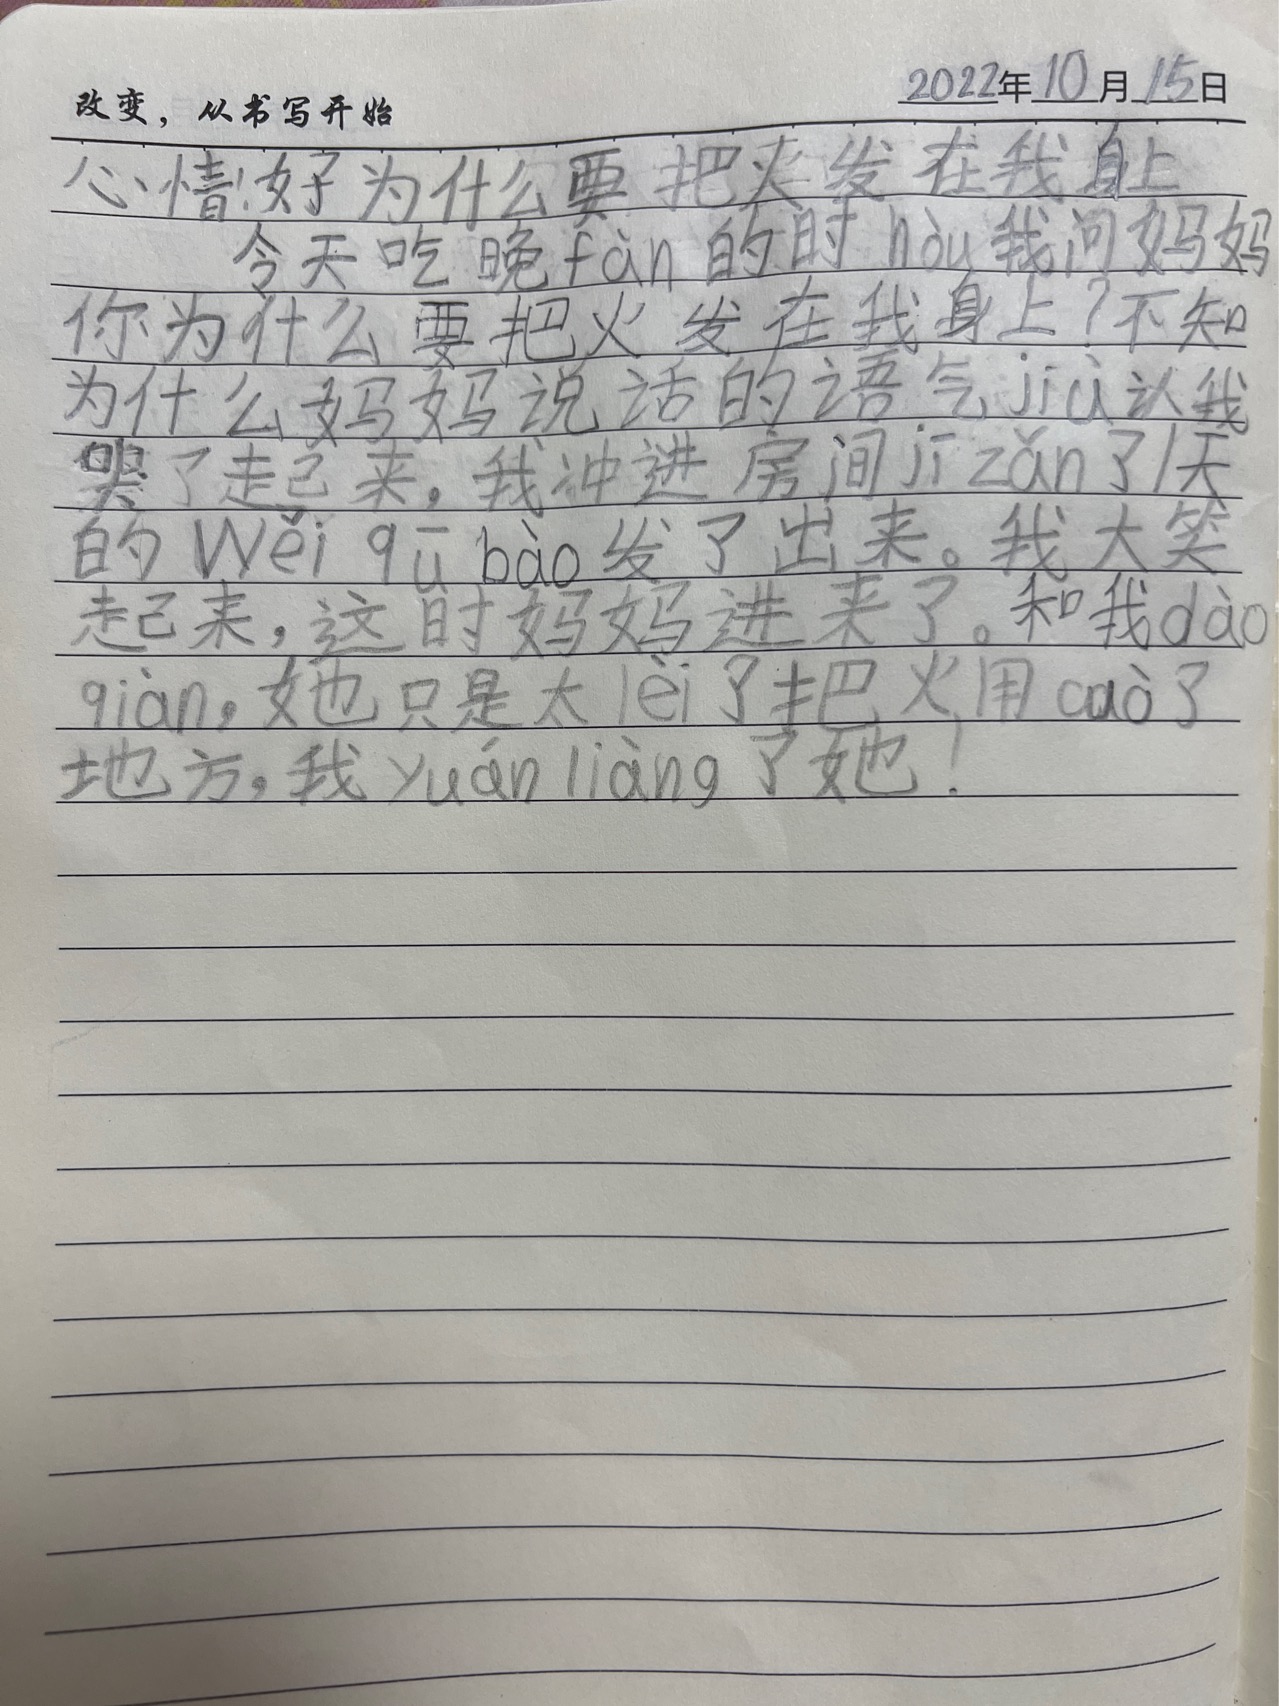 改变，从书写开始
2022年10月15日
心情!好 为什么要把火发在我身上
今天吃晚fàn的时hòu我问妈妈
你为什么要把火发在我身上?不知
为什么妈妈说话的语气jiù认我
哭了起来，我冲进房间jī zǎn了1天
的Wěi qū bào发了出来。我大笑
起来，这时妈妈进来了。和我dào
qiàn，她也只是太lèi了把火用cuò了
地方，我yuán liàng了她！